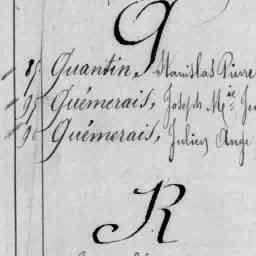 Q
Quantin, Stanislas Pierre
Quémerais, Joseph Mie
Quémerais, Julien Ange
R